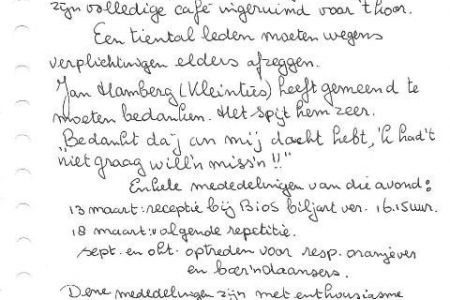 zijn volledige café ingeruimd voor 't koor.
Een tiental leden moeten wegens
verplichtingen elders afzeggen.
Jan Hamberg (Kleintüs) heeft gemeend te
moeten bedanken. Het spijt hem zeer.
"Bedankt da'j an mij dacht hebt, 'k had 't
niet graag will'n miss'n!!"
Enkele mededelingen van die avond:
13 maart: receptie bij Bios biljart ver. 16.15 uur.
18 maart: volgende repetitie.
sept. en okt. optreden voor resp. oranjever
en boer'ndaansers.
Deze mededelingen zijn met enthousiasme